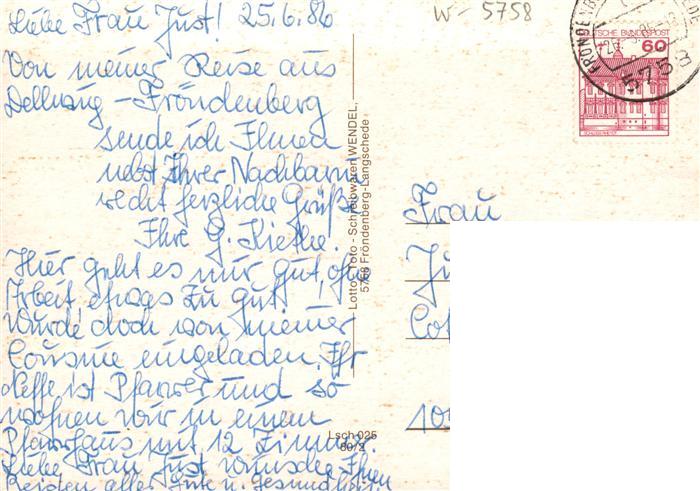 Liebe Frau Just! 25.6.86
Von meiner Reise aus
Dellwig – Fröndenberg
sende ich Ihnen
nebst Ihrer Nachbarin
recht herzliche Grüße
Ihre G. Kiethe.
Hier geht es mir gut, ohne
Arbeit etwas zu gut!
Wurde doch von meiner
Cousine eingeladen. Ihr
Neffe ist Pfarrer und so
wohnen wir in einem
Pfarrhaus mit 12 Zimmer.
Liebe Frau Just wünsche Ihnen
Beiden alles Gute u. Gesundheit.
W- 5758
DEUTSCHE BUNDESPOST
60
5758
Lotto - Toto - Schreibwaren WENDEL,
5758 Fröndenberg-Langschede
Lsch 025
80/2
Frau
Ju
10